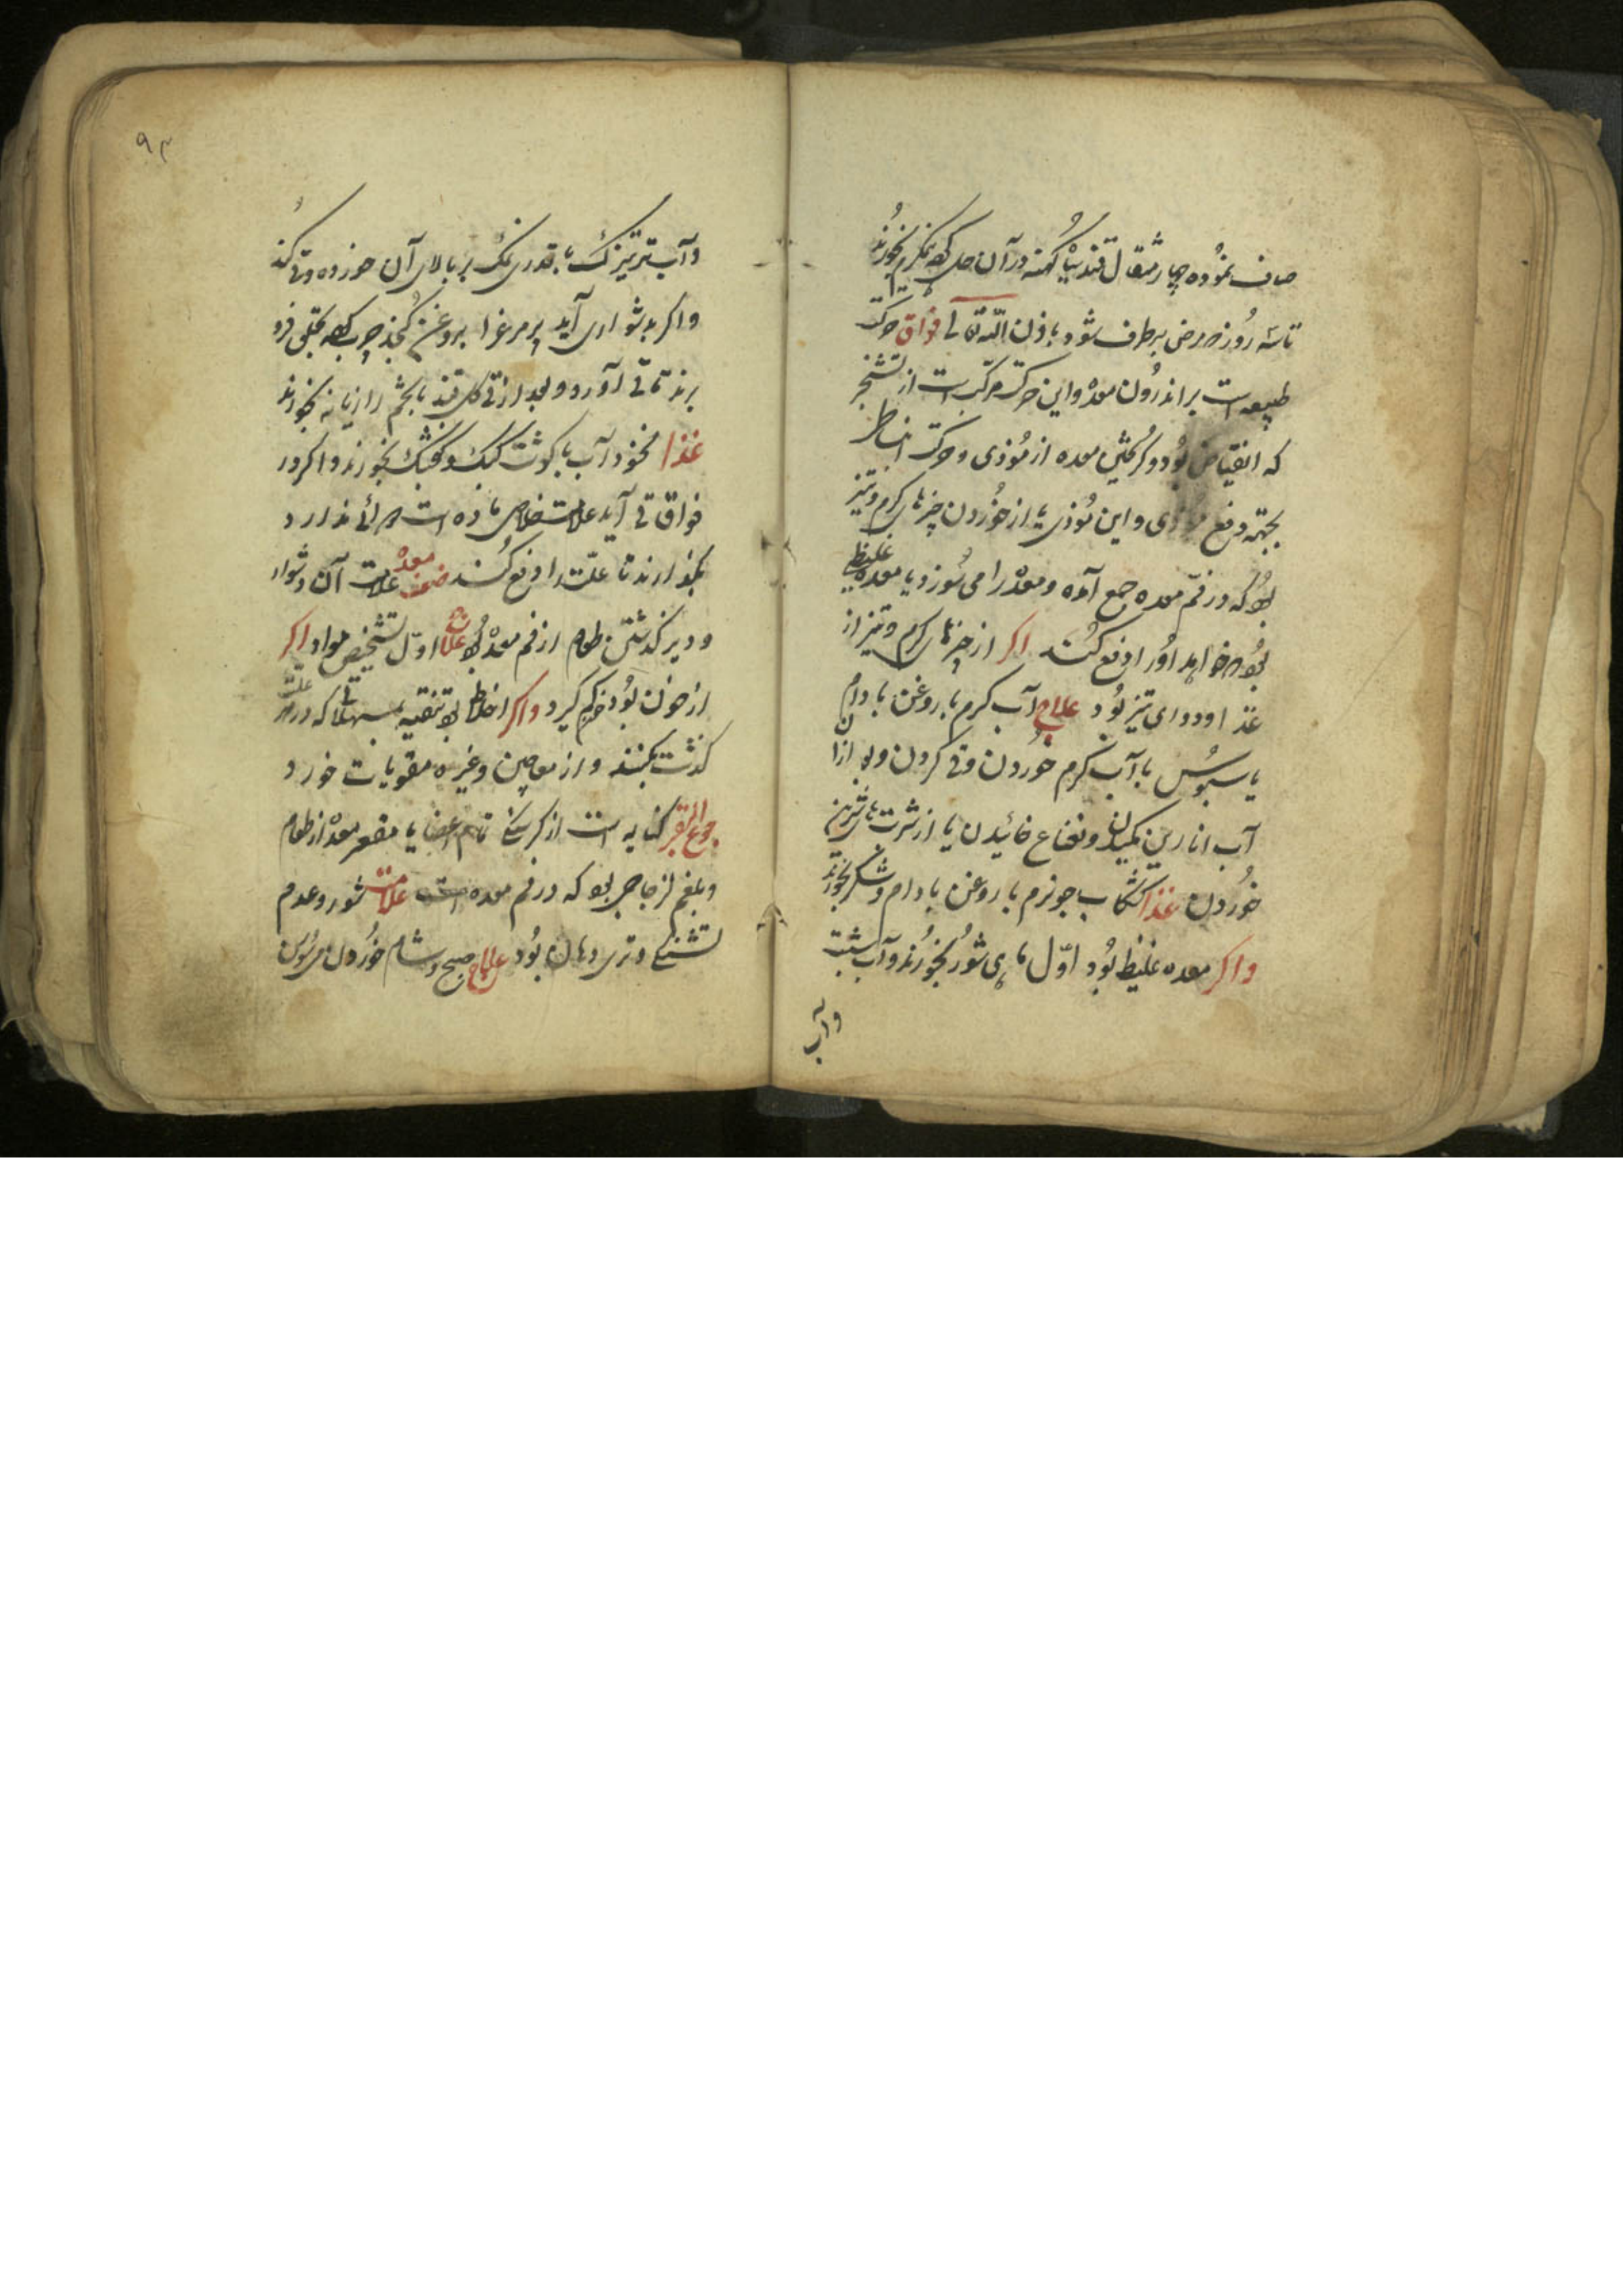 صاف نموده چهار مثقال قند سیاه کهنه در آن حل کرده نیم گرم بخورند
تا سه روز مرض برطرف شود باذن الله تعالی فواق حرکت
طبیعه است بر اندرون معده و این حرکت مرکب است از تشنج
که انقباض بود و گریختن معده از موذی و حرکت انبساط
بجهة دفع موذی و این موذی یا از خوردن چیزهای گرم و تیز
بود که در فم معده جمع آمده و معده را می سوزد یا معده غلیظ
بود می خواهد او را دفع کند اگر از چیزهای گرم و تیز از
غذا و دوای تیز بود علاج آب گرم با روغن بادام
یا سبوس با آب گرم خوردن و قی کردن و بعد از آن
آب انارین مکیدن و نعناع خائیدن یا از شربت های شیرین
خوردن غذا کشکاب جو نرم با روغن بادام و شکر بخورند
و اگر معده غلیظ بود اول ماهی شور بخورند و آب شبت
و آب
۹۳
و آب ترتیزک با قدری نمک بر بالای آن خورده قی کند
و اگر بدشواری آید پر مرغ را بروغن کنجد چرب کرده بحلق فرو
برند تا قی آورد و بعد از قی گل قند با تخم رازیانه بخورند
غذا نخود آب با گوشت کبک و گنجشک بخورند و اگر در
فواق قی آید علامت خلاصی ماده است دوائی ندارد
بگذارند تا علت را دفع کند ضعف معده علامت آن دشوار
و دیر گذشتن طعام از فم معده بود علاج اول تشخیص مواد اگر
از خون بود حکم گیرد و اگر اخلاط بود تنقیه بمسهلاتی که در هر علت
گذشت بکنند و از معاجین و غیره مقویات خورد
جوع البقر کنایه است از گرسنگی تمام اعضا یا مقعر معده از طعام
و بلغم لزجاجی بود که در فم معده است علامت شور و عدم
تشنگی و تری دهان بود علاج صبح و شام خوردن